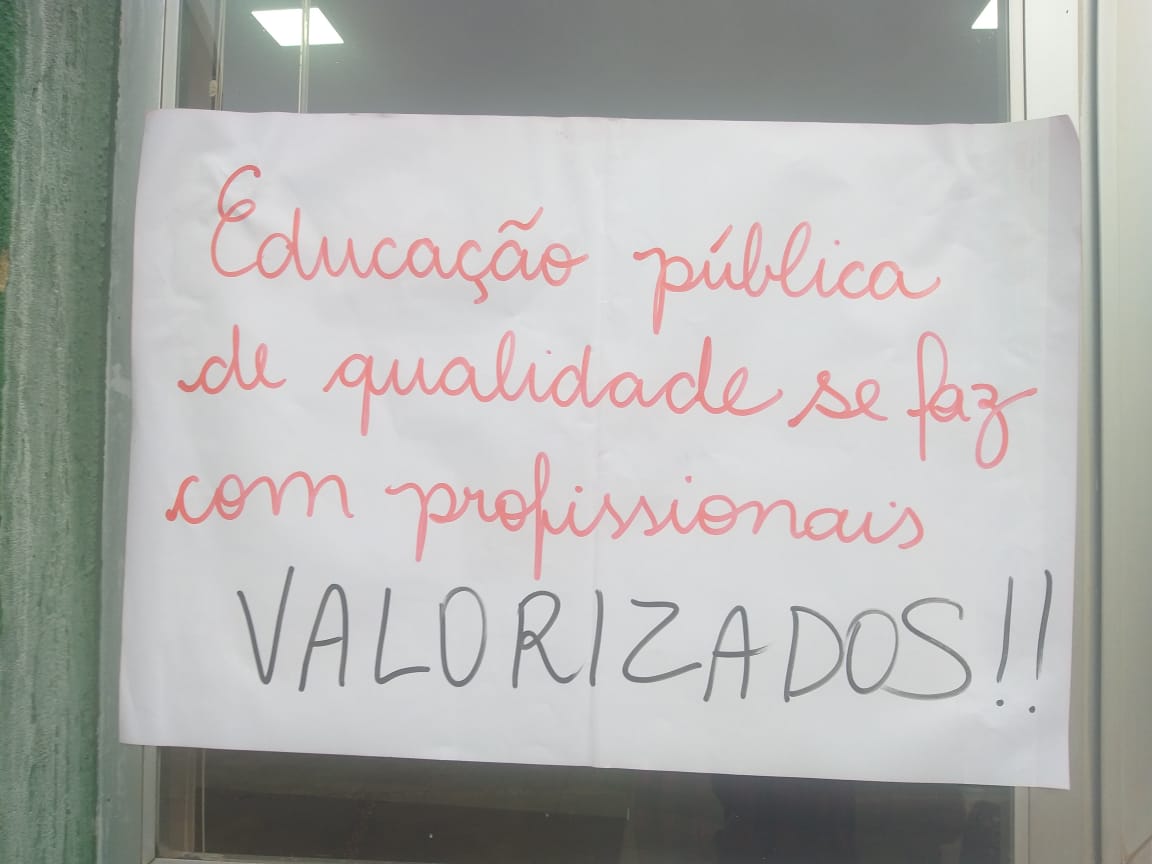 Educação pública
de qualidade se faz
com profissionais
VALORIZADOS!!